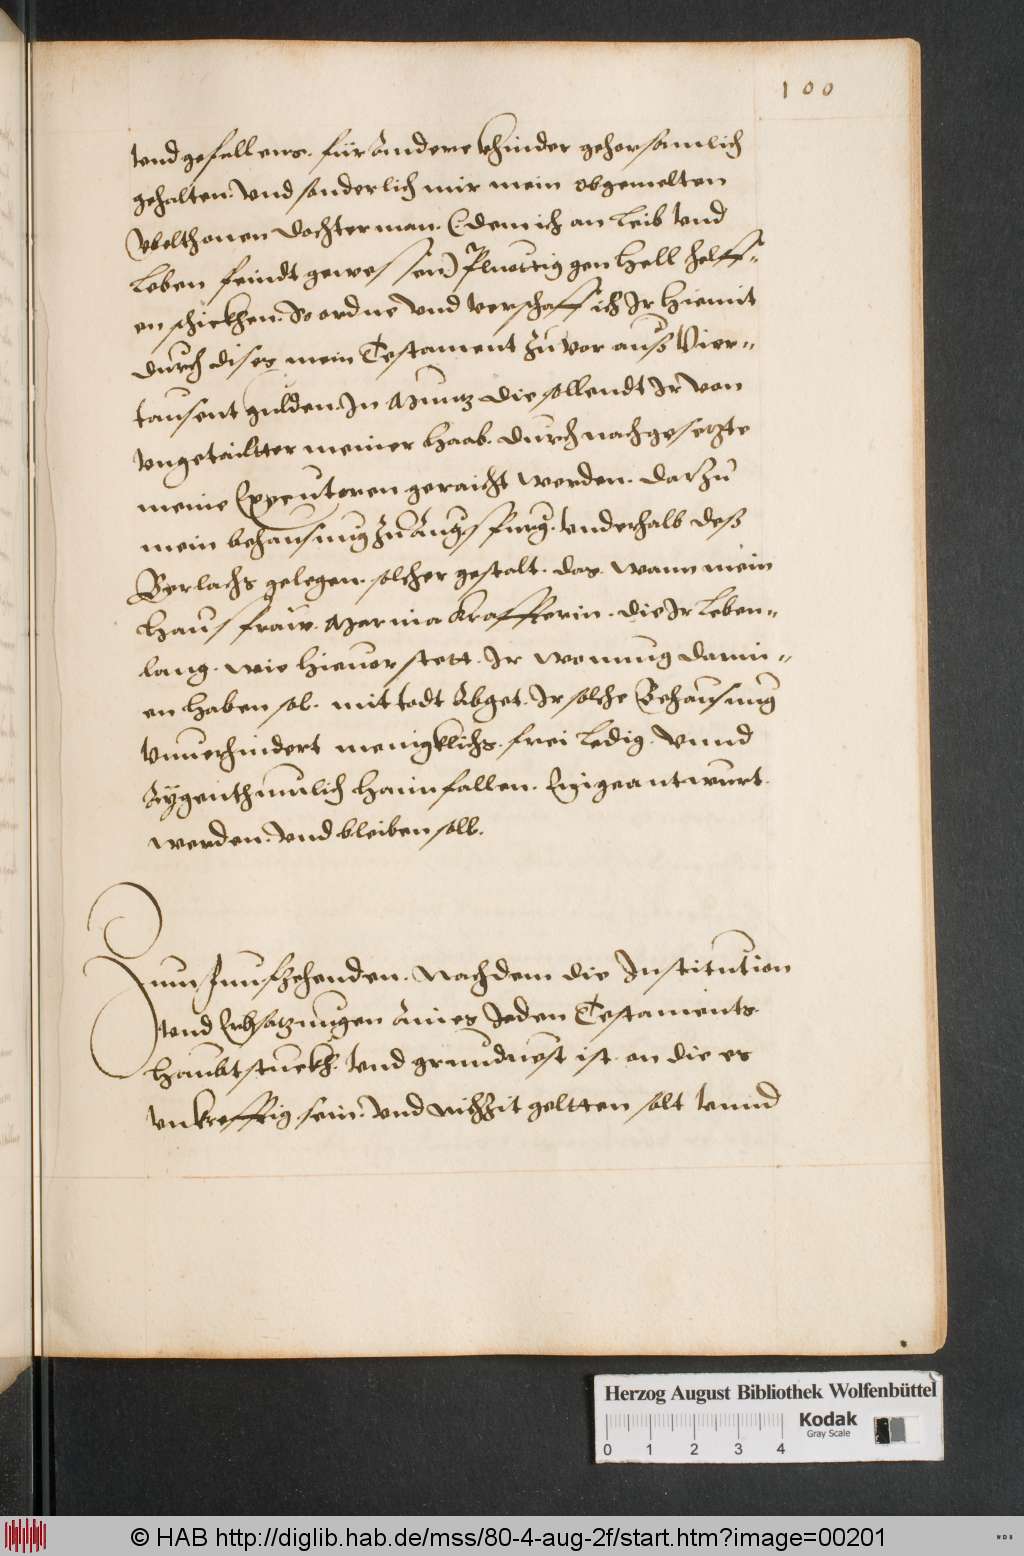 100
vnd gefallens. für Andere khinder gehorsamlich
gehalten. Vnd sonderlich mir mein obgemelten
Vbelthonen dochterman. (dem ich an leib vnd
Leben feindt gewessen) Pluottig gen Hell helff=
en schickhen. So ordne vnd verschaff ich Ir hiemit
durch dises mein Testament Zuuor auß Vier=
tausent gulden. In Muntz die sollendt Ir von
vngetailtter meiner Haab. durch nachgesetzte
meine Executoren geraicht werden. darZu
mein behausung Zu Augsspurg. vnderhalb deß
Berlachs gelegen. solcher gestalt. das. wann mein
Hausfraw. Maria Kraffterin. die Ir Leben=
lang. wie hieuor stett. Ir wonung darin=
en haben sol. mit todt Abget. Ir solche Behausung
vnuerhindert menigklichs. frei Ledig. vnnd
Aÿgenthumlich Haimfallen. Eingeantwurt.
werden. Vnd bleiben soll.
Zum Funfzehenden. Nachdem die Institution
vnd Erbsatzungen Aines Jeden Testaments
Haubtstuckh. vnd grunduest ist. on die es
vnkrefftig sein. Vnd nichZit geltten solt vnnd
Herzog August Bibliothek Wolfenbüttel
Kodak
Gray Scale
0 1 2 3 4
© HAB http://diglib.hab.de/mss/80-4-aug-2f/start.htm?image=00201